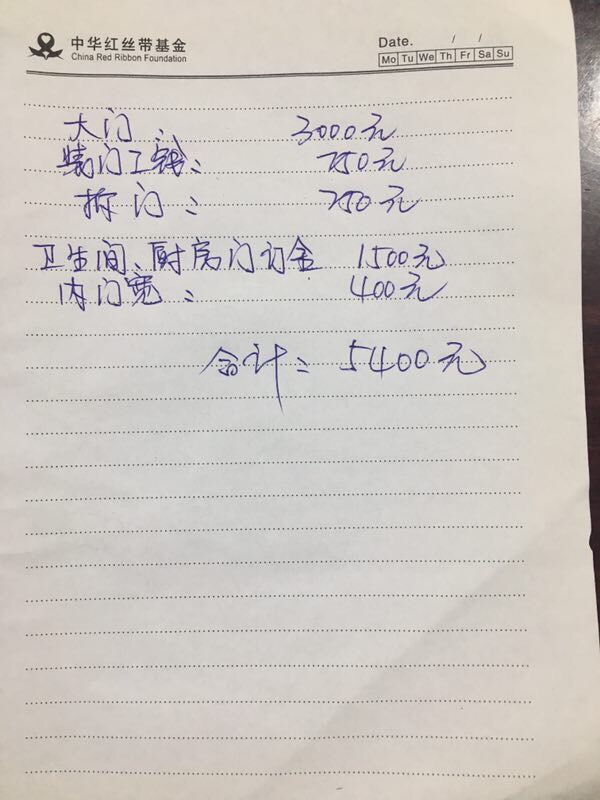 中华红丝带基金
China Red Ribbon Foundation
Date. / /
Mo Tu We Th Fr Sa Su
大门: 3000元
装门工钱: 250元
拆门: 250元
卫生间、厨房门订金 1500元
内门宽: 400元
合计: 5400元